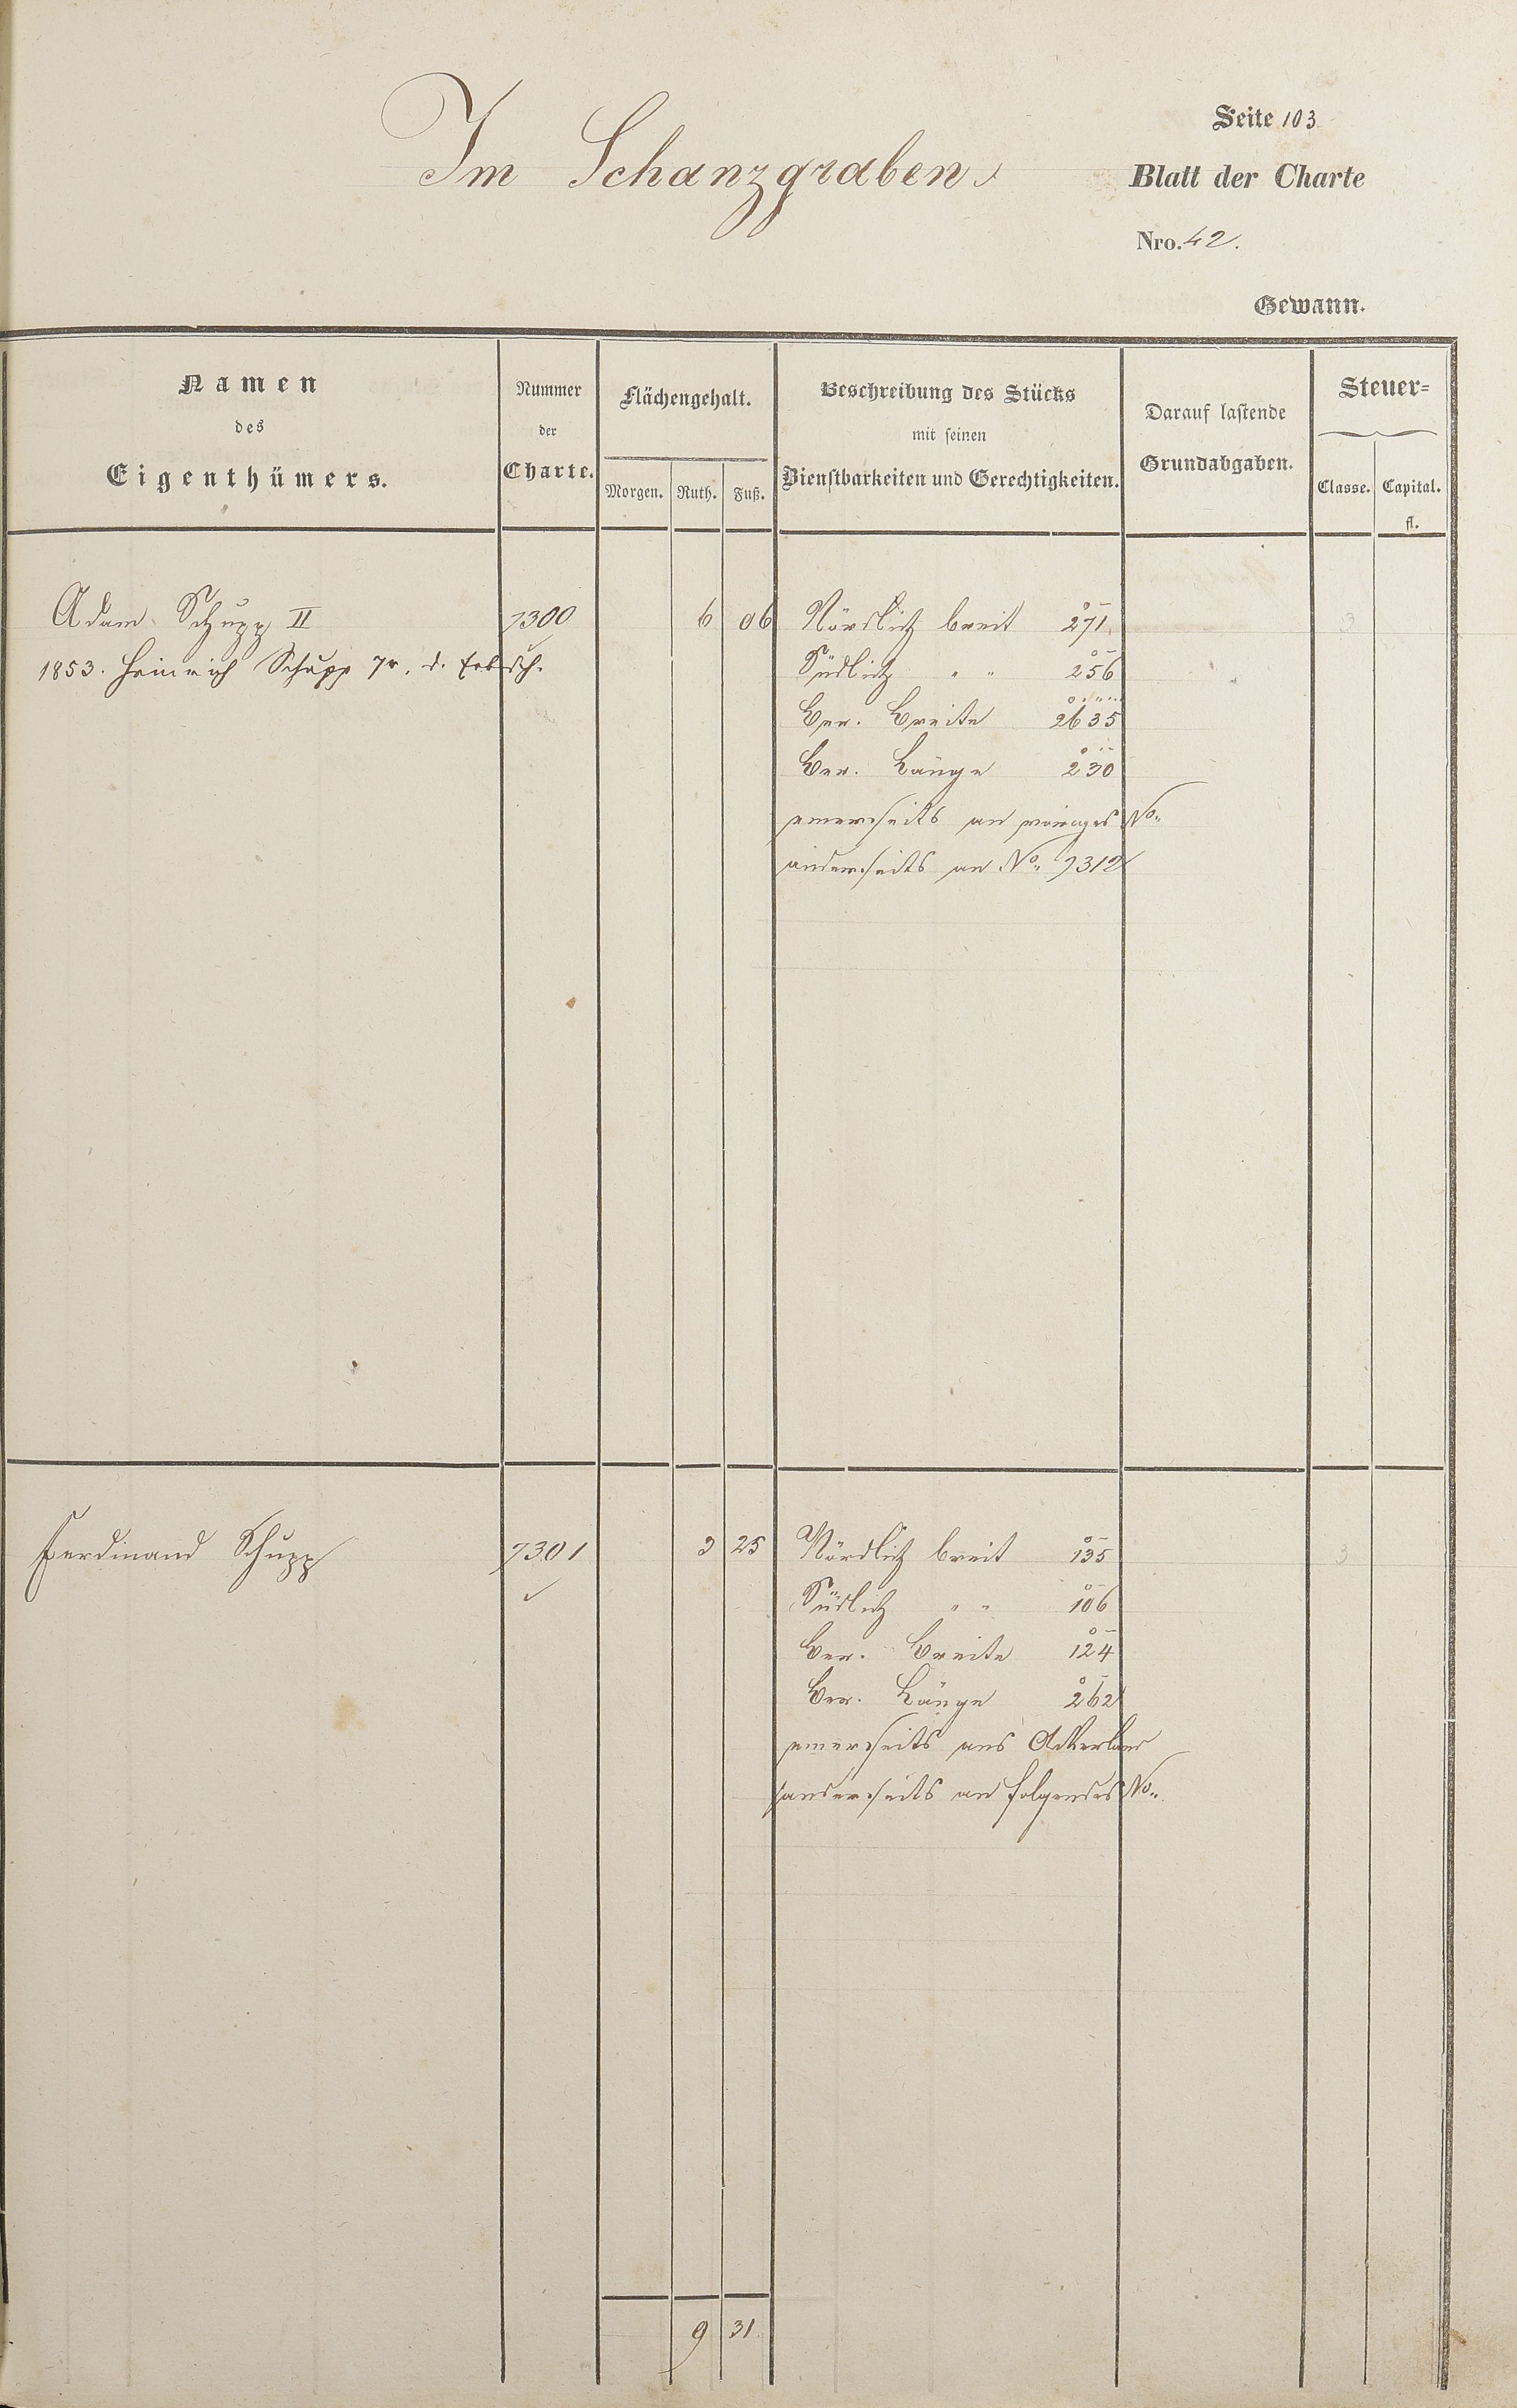 Im Schanzgraben
Seite 103
Blatt der Charte
Nro. 42.
Gewann.
Namen
des
Eigenthümers.
Nummer
der
Charte.
Flächengehalt.
Morgen. Ruth. Fuß.
Beschreibung des Stücks
mit seinen
Dienstbarkeiten und Gerechtigkeiten.
Darauf lastende
Grundabgaben.
Steuer=
Classe. Capital.
fl.
Adam Schupp II 7300 6 06 Nördlich breit 271 3
1853. Heinrich Schupp 7r. d. Erbsch. Südlich " " 256
Ber. Breite 2635
Ber. Länge 230
einerseits an voriges No.
anderseits an No. 7312
Ferdinand Schupp 7301 3 25 Nördlich breit 135 3
Südlich " " 106
Ber. Breite 124
Ber. Länge 262
einerseits ans Ackerland
anderseits an folgendes No.
9 31